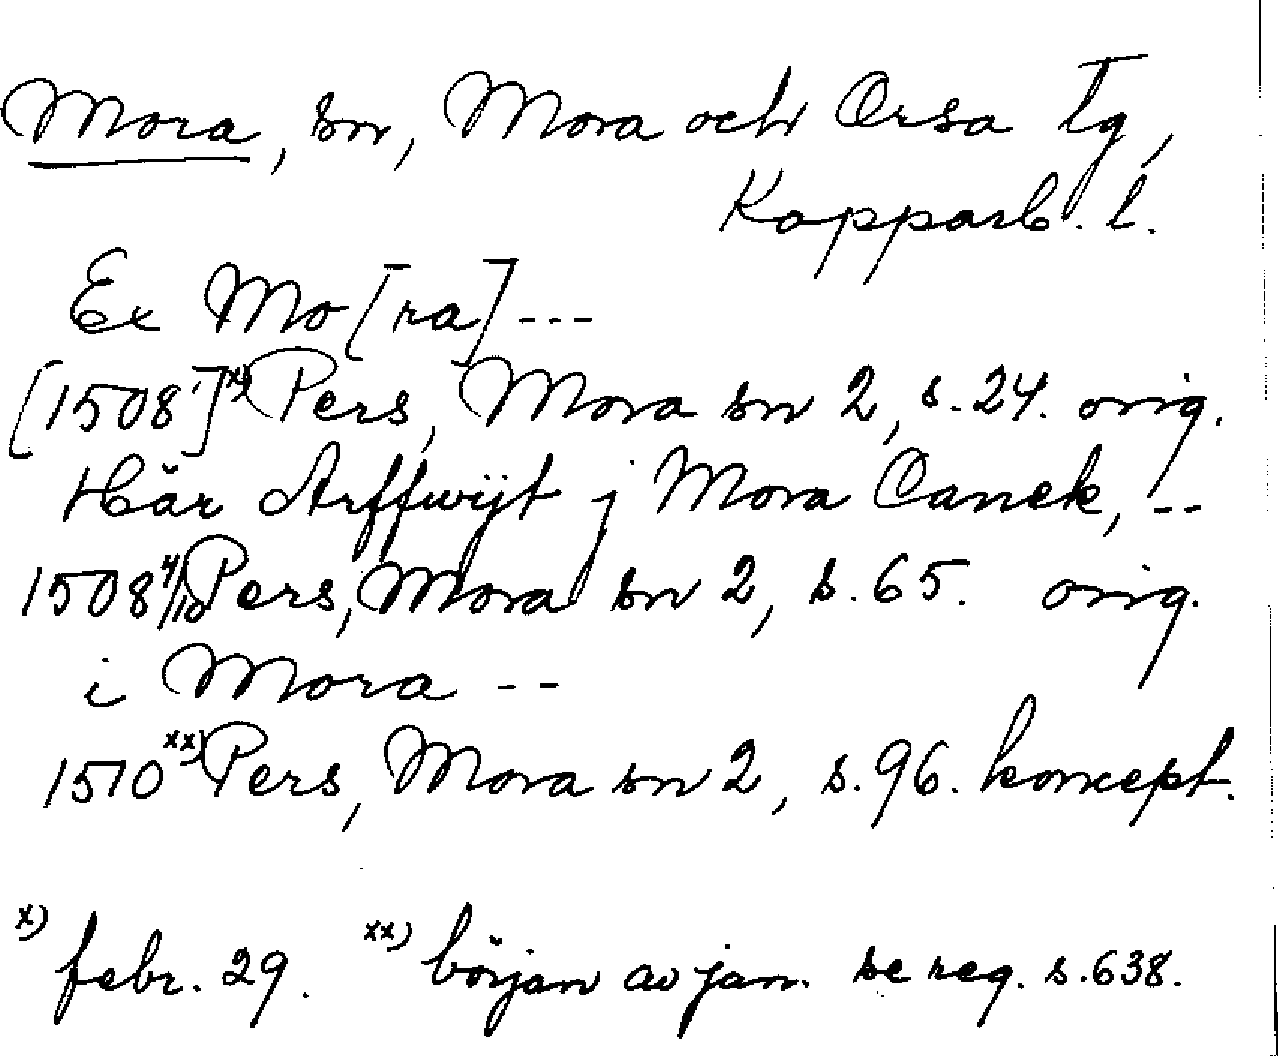 Mora, sn, Mora och Orsa Tg,
Kopparb. l.
Ex Mo[ra] ---
[1508]x) Pers, Mora sn 2, s. 24. orig.
Här Arffwijt j Mora Canek, --
1508 4/10 Pers, Mora sn 2, s. 65. orig.
i Mora --
1510xx) Pers, Mora sn 2, s. 96. koncept.
x) febr. 29. xx) början av jan. se reg. s. 638.